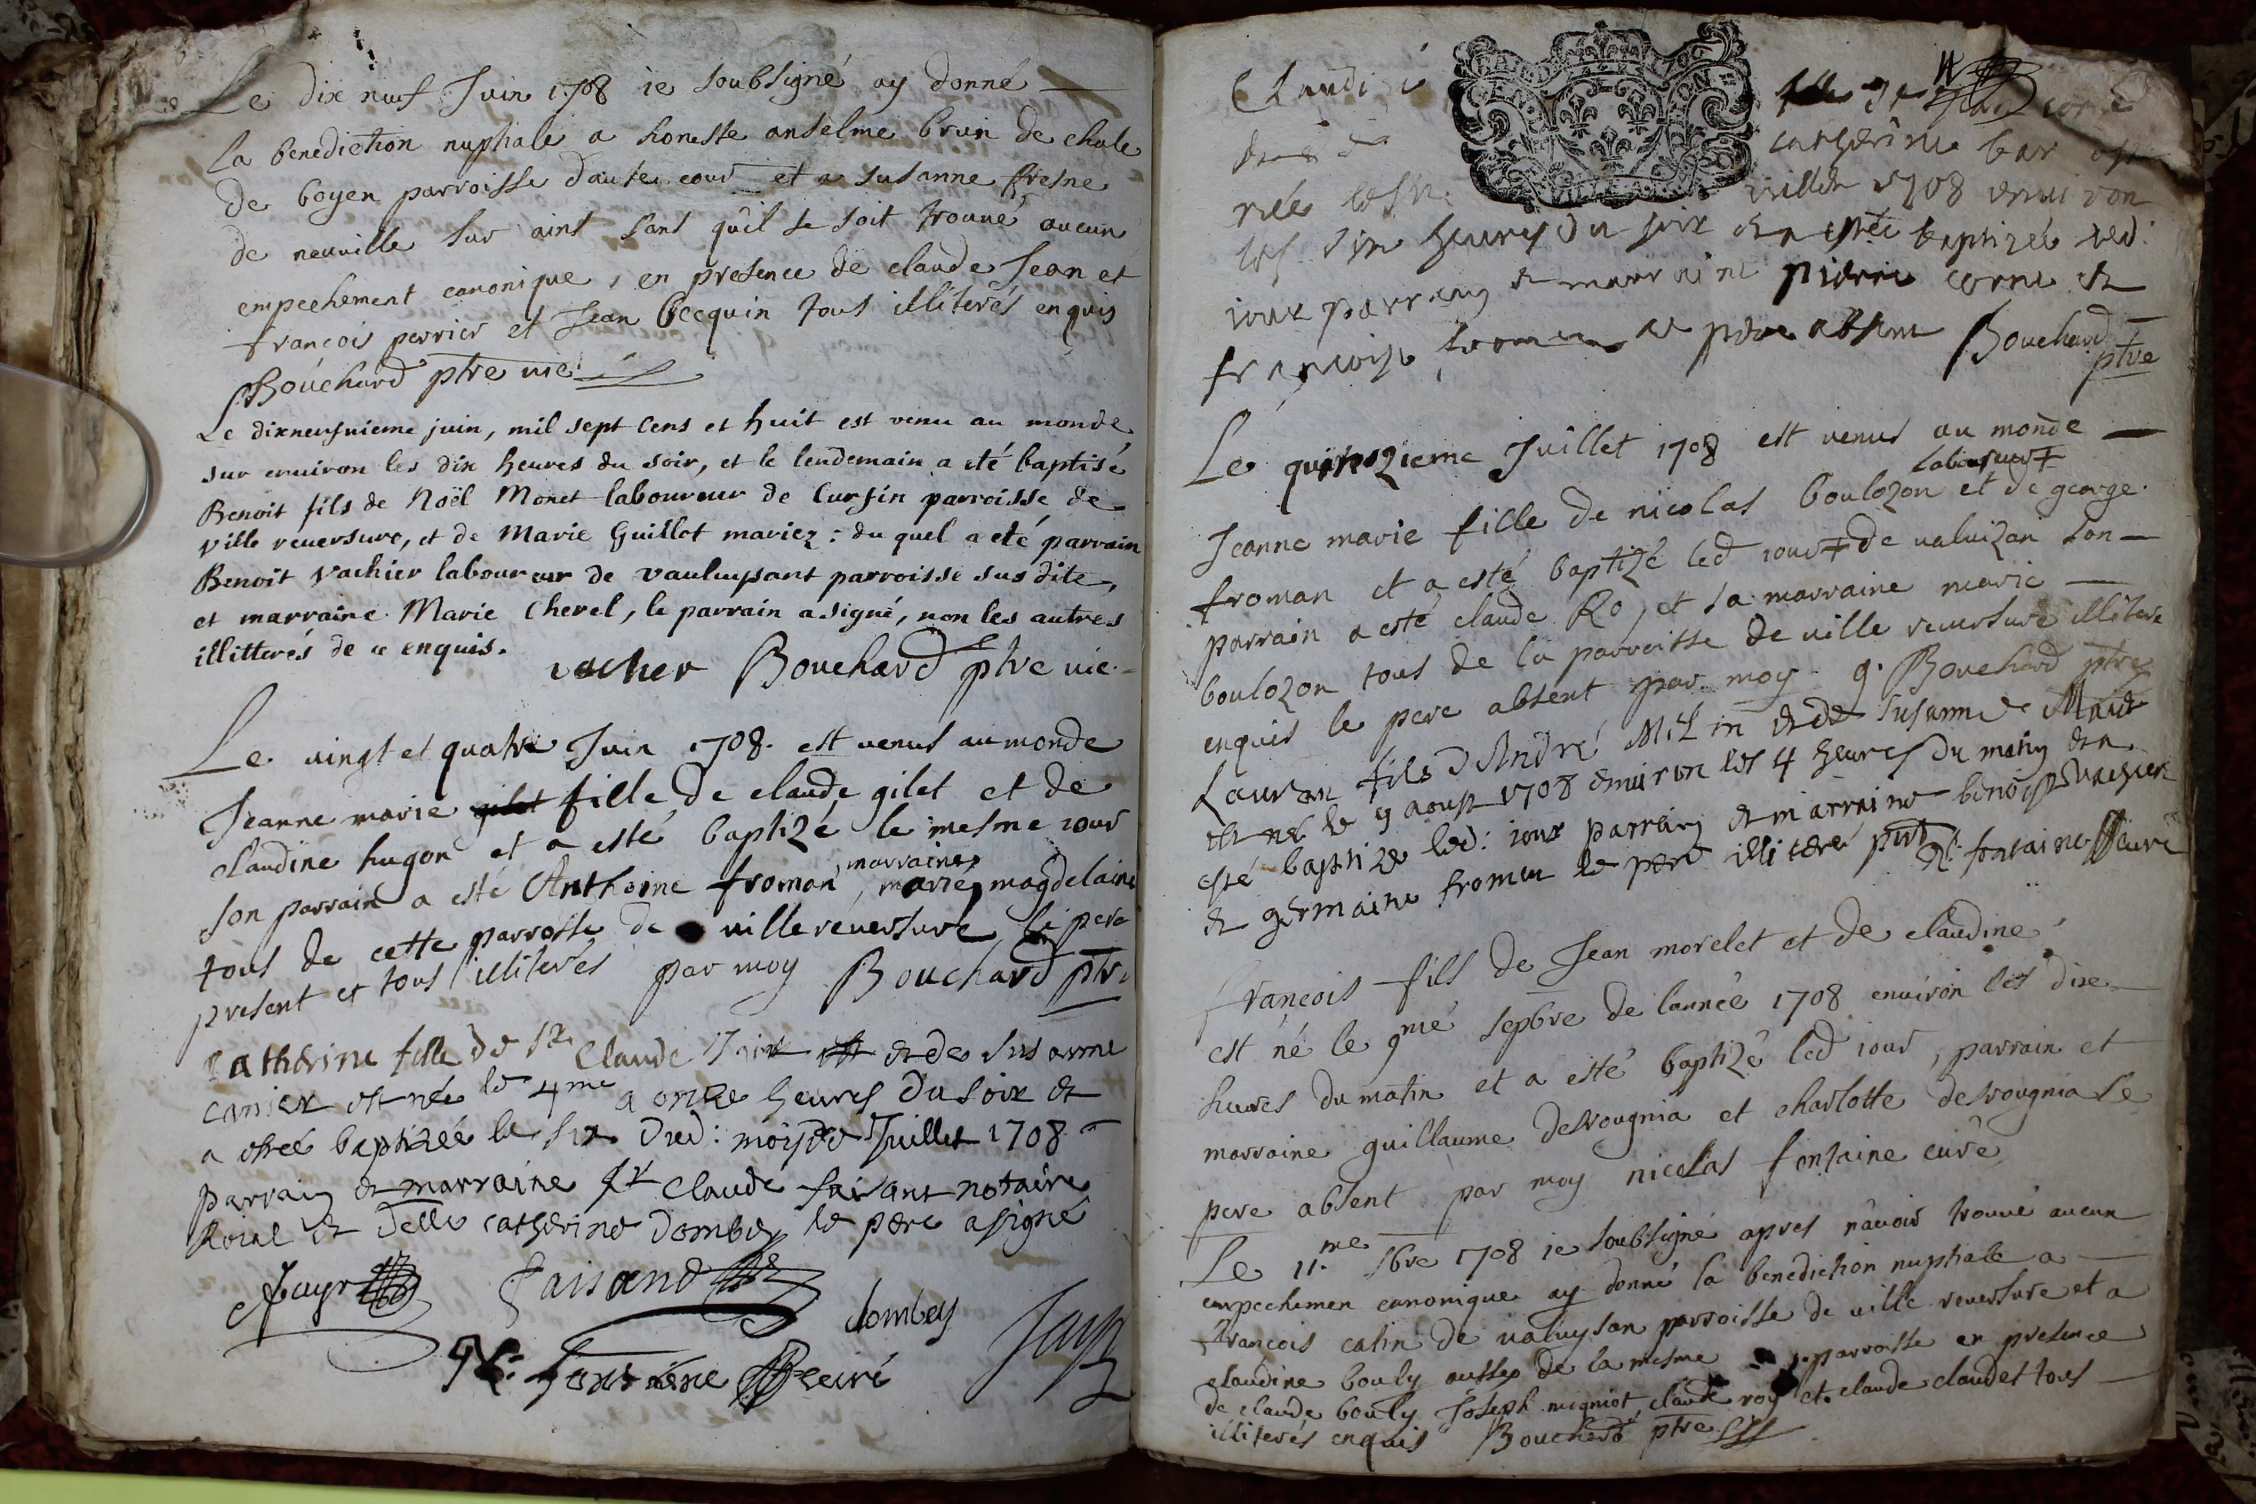 Le dix neuf Juin 1708 ie soubsigné ay donné
la benediction nuptiale a honeste anselme brun de chale
de boyen parroisse d'aute cour et a susanne fresne
de neuville sur aint sans qu'il se soit trouué aucun
empechement canonique, en presence de claude Jean et
françois perrier et Jean becquin tous illiterés enquis
Bouchard ptre vic
Le dixneufuieme juin, mil sept cens et huit est venu au monde
sur enuiron les dix heures du soir, et le lendemain a eté baptisé
Benoit fils de Noël Monet laboureur de Cursin parroisse de
ville reuersure, et de Marie Guillot mariez : du quel a eté parrain
Benoit Vachier laboureur de Vauluysant parroisse sus dite,
et marraine Marie Chevel, le parrain a signé, non les autres
illitterés de ce enquis.
vacher Bouchard ptre vic.
Le vingt et quatre Juin 1708. est venus au monde
Jeanne marie fille de claude gilet et de
claudine hugon et a esté baptizé le mesme iour
son parrain a esté Anthoine froman, marraine marie magdelaine
tous de cette parroisse de ville réuersure le pere
present et tous illiterés par moy Bouchard ptre
Catherine fille de Sr. Claude et de Susanne
est née le 4me a onze heures du soir et
a estée baptizée le six dud: mois de Juillet 1708
parrain et marraine Sr Claude faisant notaire
Roial et delle catherine dombey le pere a signé
Jayr Faisand
dombey Jayr
N. Fontaine curé
Claudine fille de
catherine
juillet 1708 enuiron
les six heures du soir et a estée baptizée led:
iour parrain et marraine pierre corne et
françoise froman le pere absent Bouchard
ptre
Le quinzieme Juillet 1708 est venus au monde
laboureur +
Jeanne marie fille de nicolas boulozon et de george
froman et a esté baptizé led iour + de valuizan son
parrain a esté claude Ro, et sa marraine marie
boulozon tous de la parroisse de ville reuersure illitere
enquis le pere absent par moy g. Bouchard ptre
Lauran fils d'André Mi in et de Susanne
est né le 9 aoust 1708 enuiron les 4 heures du matin et a
esté baptizé led: iour parrain et marraine benoist vachier
et germaine froman le pere illiteré N. fontaine curé
françois fils de Jean morelet et de claudine
est né le 9mé sepbre de lannée 1708 enuiron les dix
heures du matin et a esté baptizé led iour, parrain et
marraine guillaume desvougnia et charlotte desvougnia le
pere absent par moy nicolas fontaine curé
Le 11.me 8bre 1708 ie soubsigné apres n'auoir trouué aucun
empechemen canonique ay donné la benediction nuptiale a
françois catin de valuysan parroisse de ville reuersure et a
claudine bouly aussy de la mesme parroisse en presence
de claude bouly Joseph migniot, claude roy et claude claudet tous
illiterés enquis Bouchard ptre